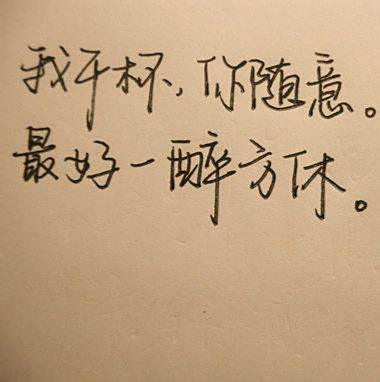 我干杯,你随意。
最好一醉方休。